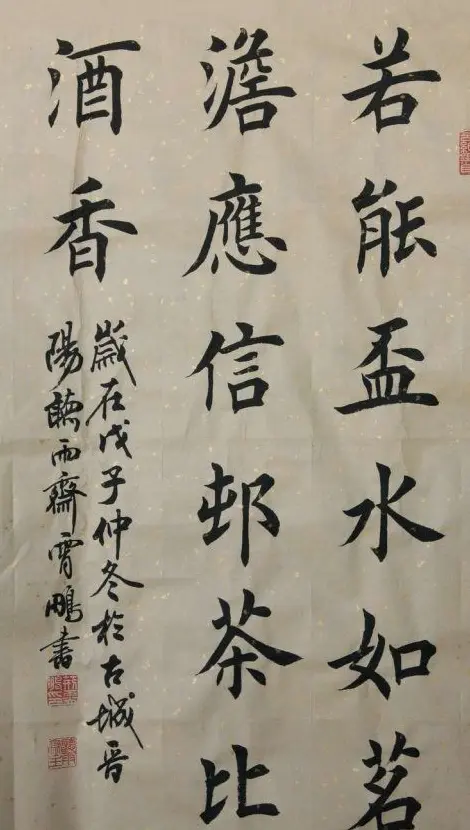 若能盃水如茗
澹應信邨茶比
酒香
歲在戊子仲冬於古城晉
陽聽雨齋霄鵬書